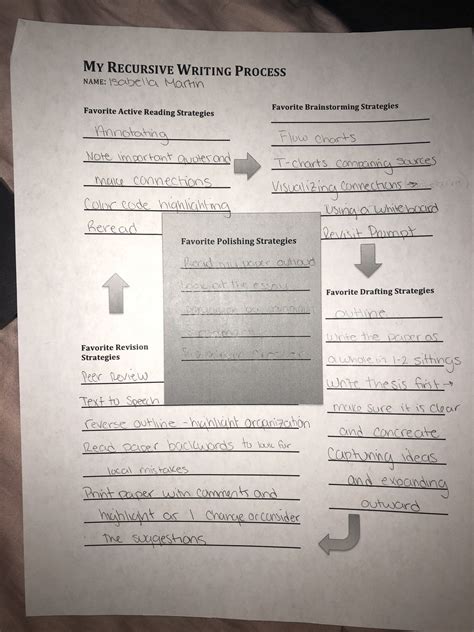 MY RECURSIVE WRITING PROCESS
NAME: Isabella Martin
Favorite Active Reading Strategies
Annotating
Note important quotes and
make connections
Color code highlighting
Reread
Favorite Brainstorming Strategies
Flow charts
T-charts comparing sources
Visualizing connections →
Using a whiteboard
Revisit Prompt
Favorite Polishing Strategies
Read my paper outloud
Look at the essay
Favorite Drafting Strategies
outline
Write the paper as
a whole in 1-2 sittings
Write thesis first →
make sure it is clear
and concreate
Capturing ideas
and expanding
outward
Favorite Revision
Strategies
Peer Review
Text to Speech
reverse outline - highlight organization
Read paper backwards to look for
local mistakes
Print paper with comments and
highlight as I change or consider
the suggestions